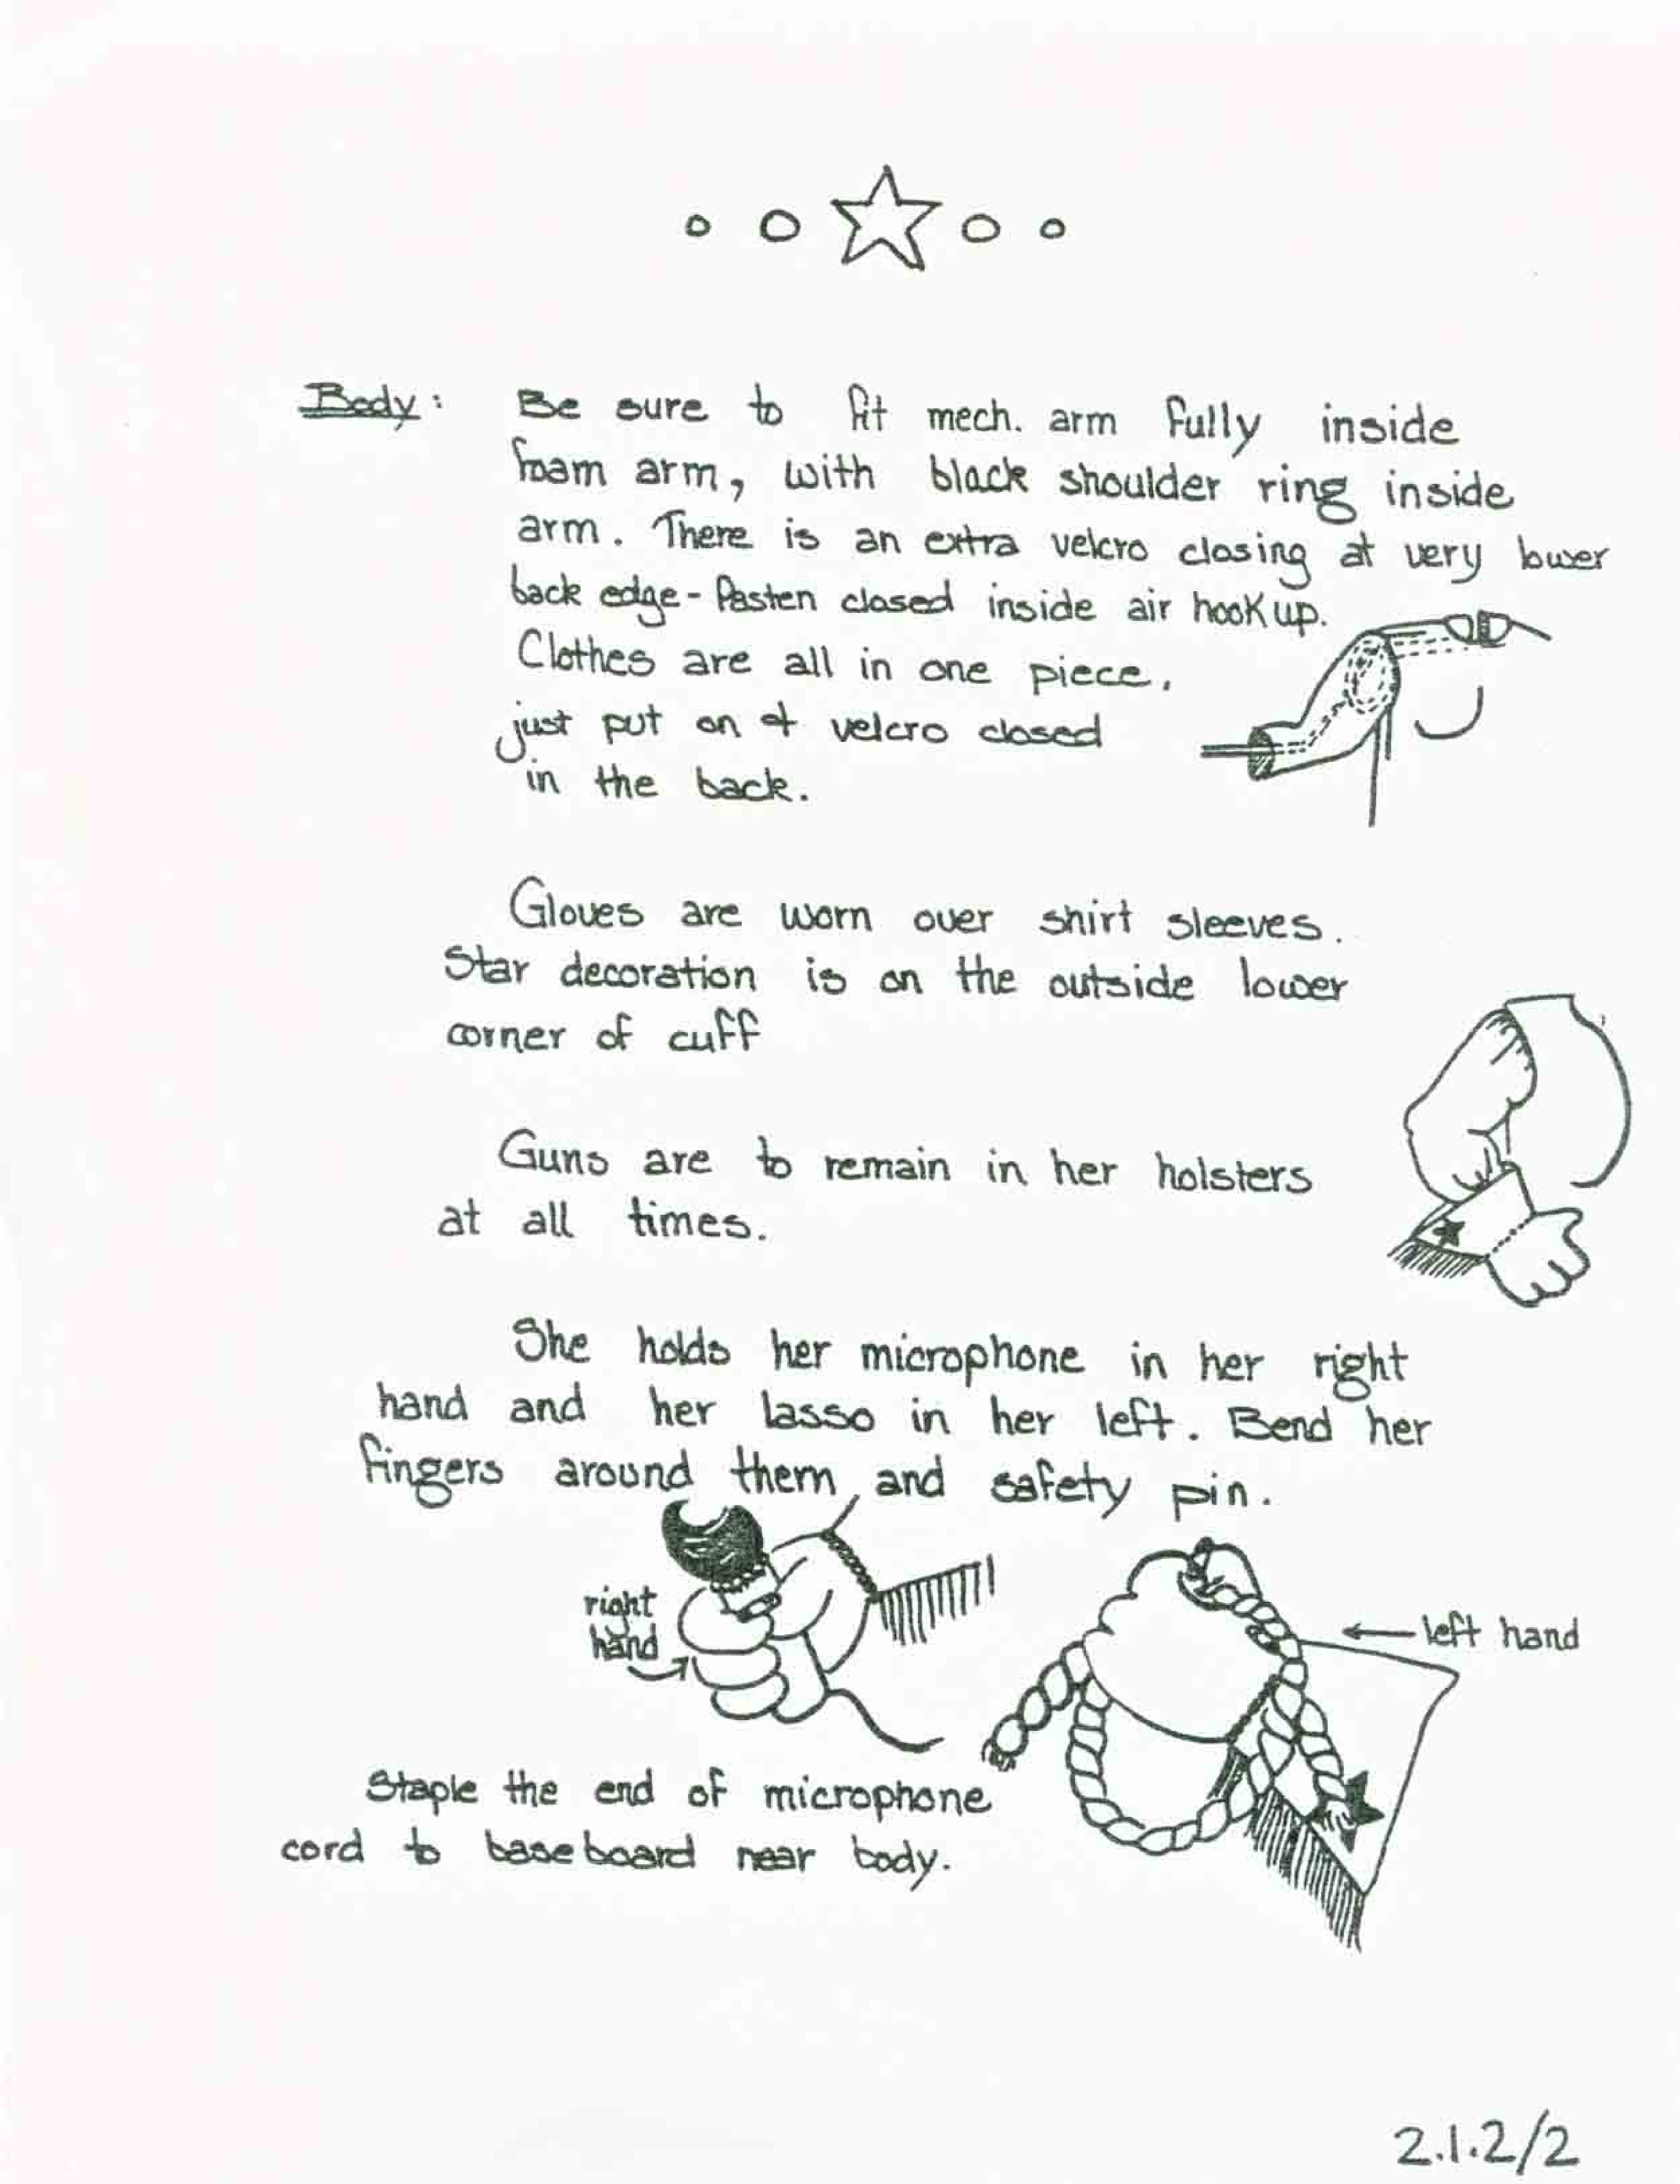 Body: Be sure to fit mech. arm fully inside
foam arm, with black shoulder ring inside
arm. There is an extra velcro closing at very lower
back edge - fasten closed inside air hook up.
Clothes are all in one piece,
just put on & velcro closed
in the back.
Gloves are worn over shirt sleeves.
Star decoration is on the outside lower
corner of cuff
Guns are to remain in her holsters
at all times.
She holds her microphone in her right
hand and her lasso in her left. Bend her
fingers around them and safety pin.
right
hand
left hand
Staple the end of microphone
cord to baseboard near body.
2.1.2/2